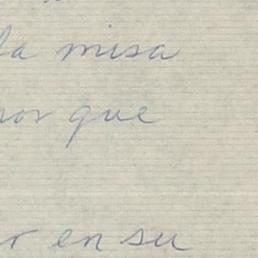 la misa
por que
r en su